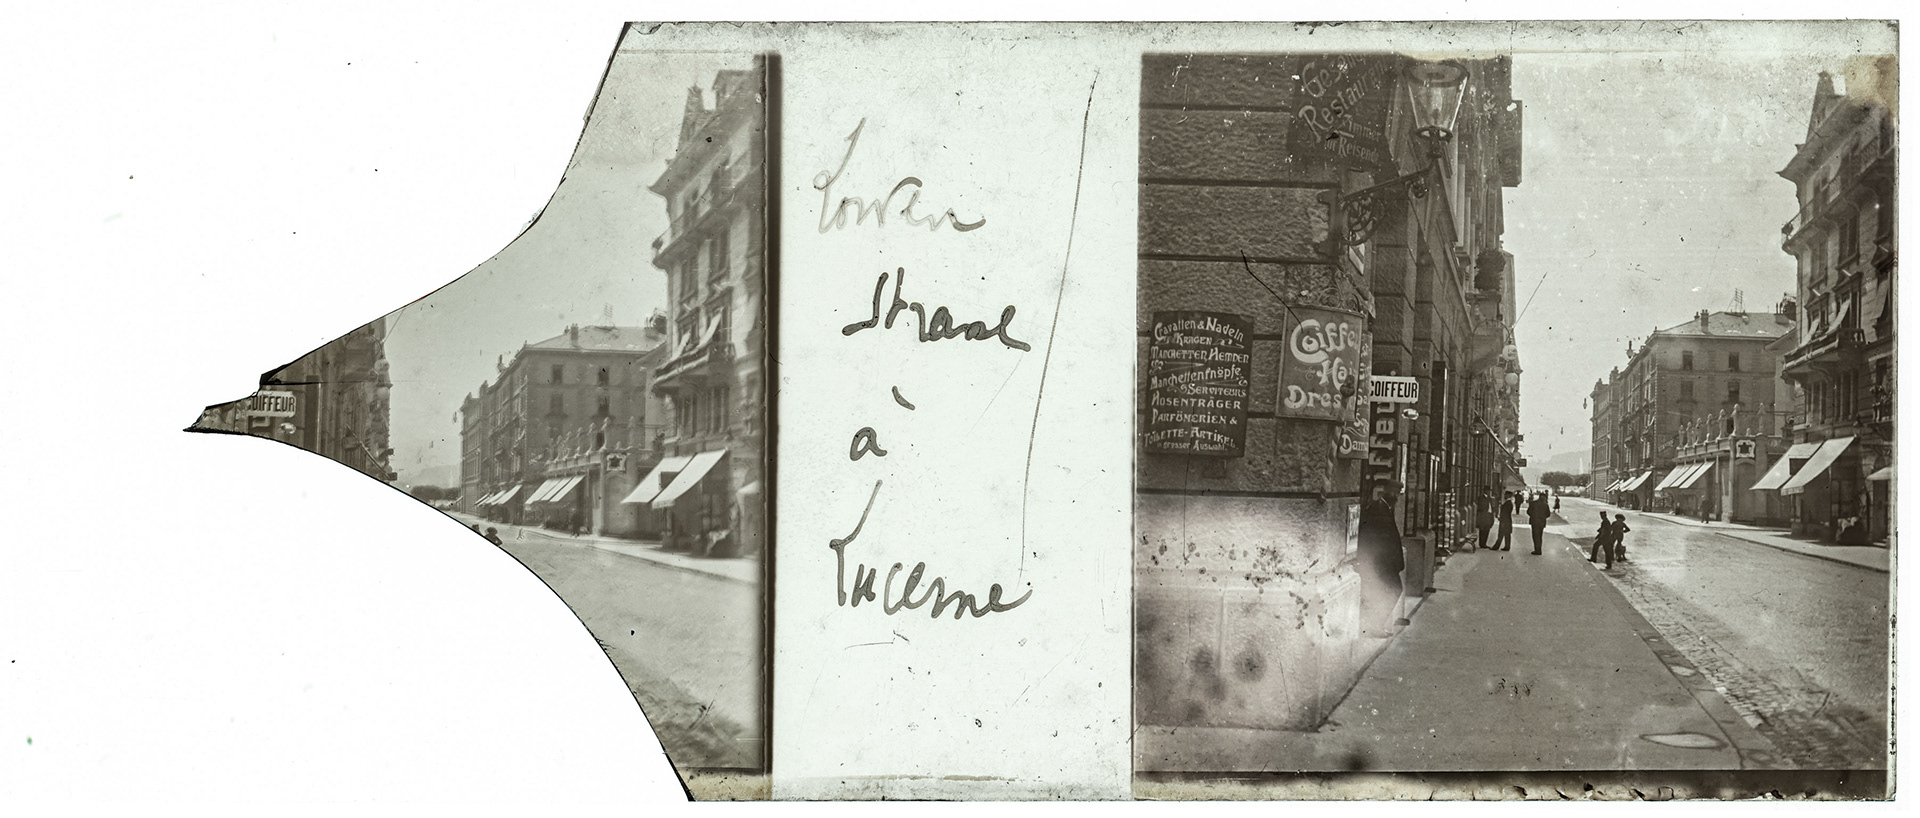 COIFFEUR
Lowen
Strasse
à
Lucerne
Restaur
Zimmer
für Reisende
Cravatten & Nadeln
KRAGEN
MANCHETTEN HEMDEN
Manchettenknöpfe
& SERVITEURS
HOSENTRÄGER
PARFÖMERIEN &
TOILETTE-ARTIKEL
in grosser Auswahl
Coiffe
Ha
Dres
COIFFEUR
iffeu
Dam